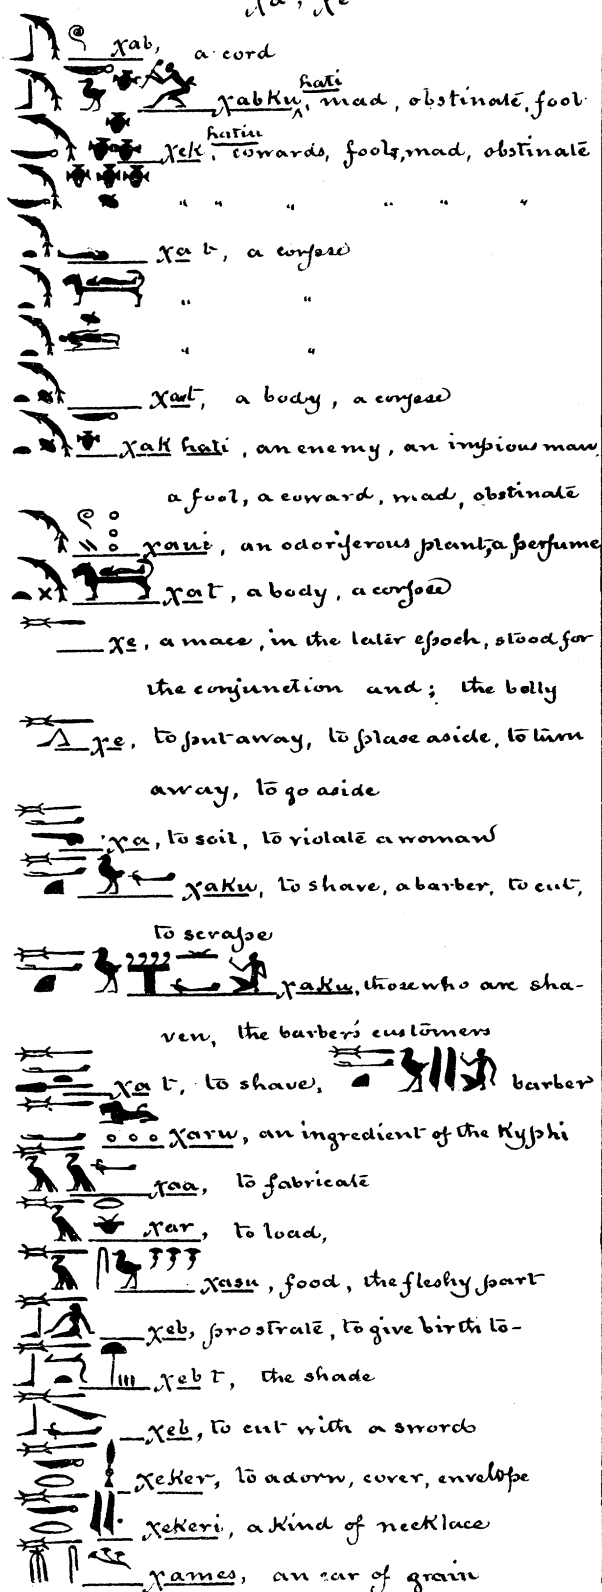 χa, χe
χab, a cord
χabku hati, mad, obstinate, fool
χek hatiu, cowards, fools, mad, obstinate
" " " " " "
χa t, a corpse
" "
" "
χat, a body, a corpse
χak hati, an enemy, an impious man,
a fool, a coward, mad, obstinate
χaui, an odoriferous plant, a perfume
χat, a body, a corpse
χe, a mace, in the later epoch, stood for
the conjunction and; the belly
χe, to put away, to place aside, to turn
away, to go aside
χa, to soil, to violate a woman
χaku, to shave, a barber, to cut,
to scrape
χaku, those who are sha-
ven, the barber's customers
χa t, to shave, barber
χaru, an ingredient of the Kyphi
χaa, to fabricate
χar, to load,
χasu, food, the fleshy part
χeb, prostrate, to give birth to-
χeb t, the shade
χeb, to cut with a sword
χeker, to adorn, cover, envelope
χekeri, a kind of necklace
χames, an ear of grain